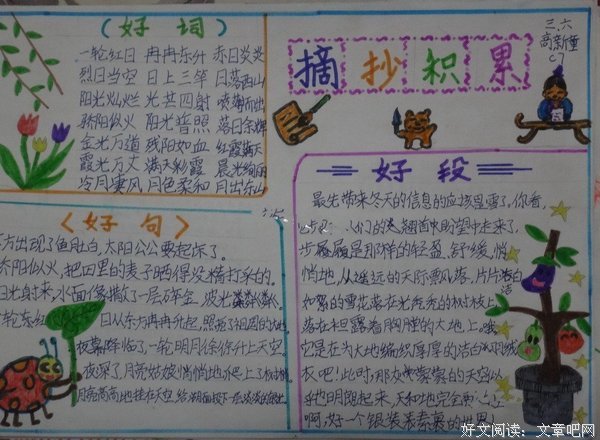 （好词）
一轮红日 冉冉东升 赤日炎炎
烈日当空 日上三竿 日落西山
阳光灿烂 光芒四射 喷薄而出
骄阳似火 阳光普照 落日余辉
金光万道 残阳如血 红霞满天
霞光万丈 满天彩霞 晨光绚丽
冷月凄风 月色柔和 月出东山
摘抄积累
三、六
商新童
好段
最先带来冬天的信息的应该是雪了，你看，
人们的翘首盼望中走来了，
步履是那样的轻盈、舒缓，悄
悄地，从遥远的天际飘落，片片洁白
如絮的雪花落在光秃秃的树枝上
落在袒露着胸膛的大地上。哦
它是在为大地编织厚厚的洁白
衣吧！此时，那灰雾雾的天空
啊，好一个银装素裹的世界！
〈好句〉
方出现了鱼肚白，太阳公公要起床了。
骄阳似火，把四里的麦子晒得没精打采的。
阳光射来，水面像撒了一层碎金，波光粼粼
一轮东红 日从东方冉冉升起，照
夜幕降临了，一轮明月徐徐升上天空。
夜深了，月亮姑娘悄悄地爬上了树梢
月亮高高地挂在天空，给
好文阅读：文章吧网